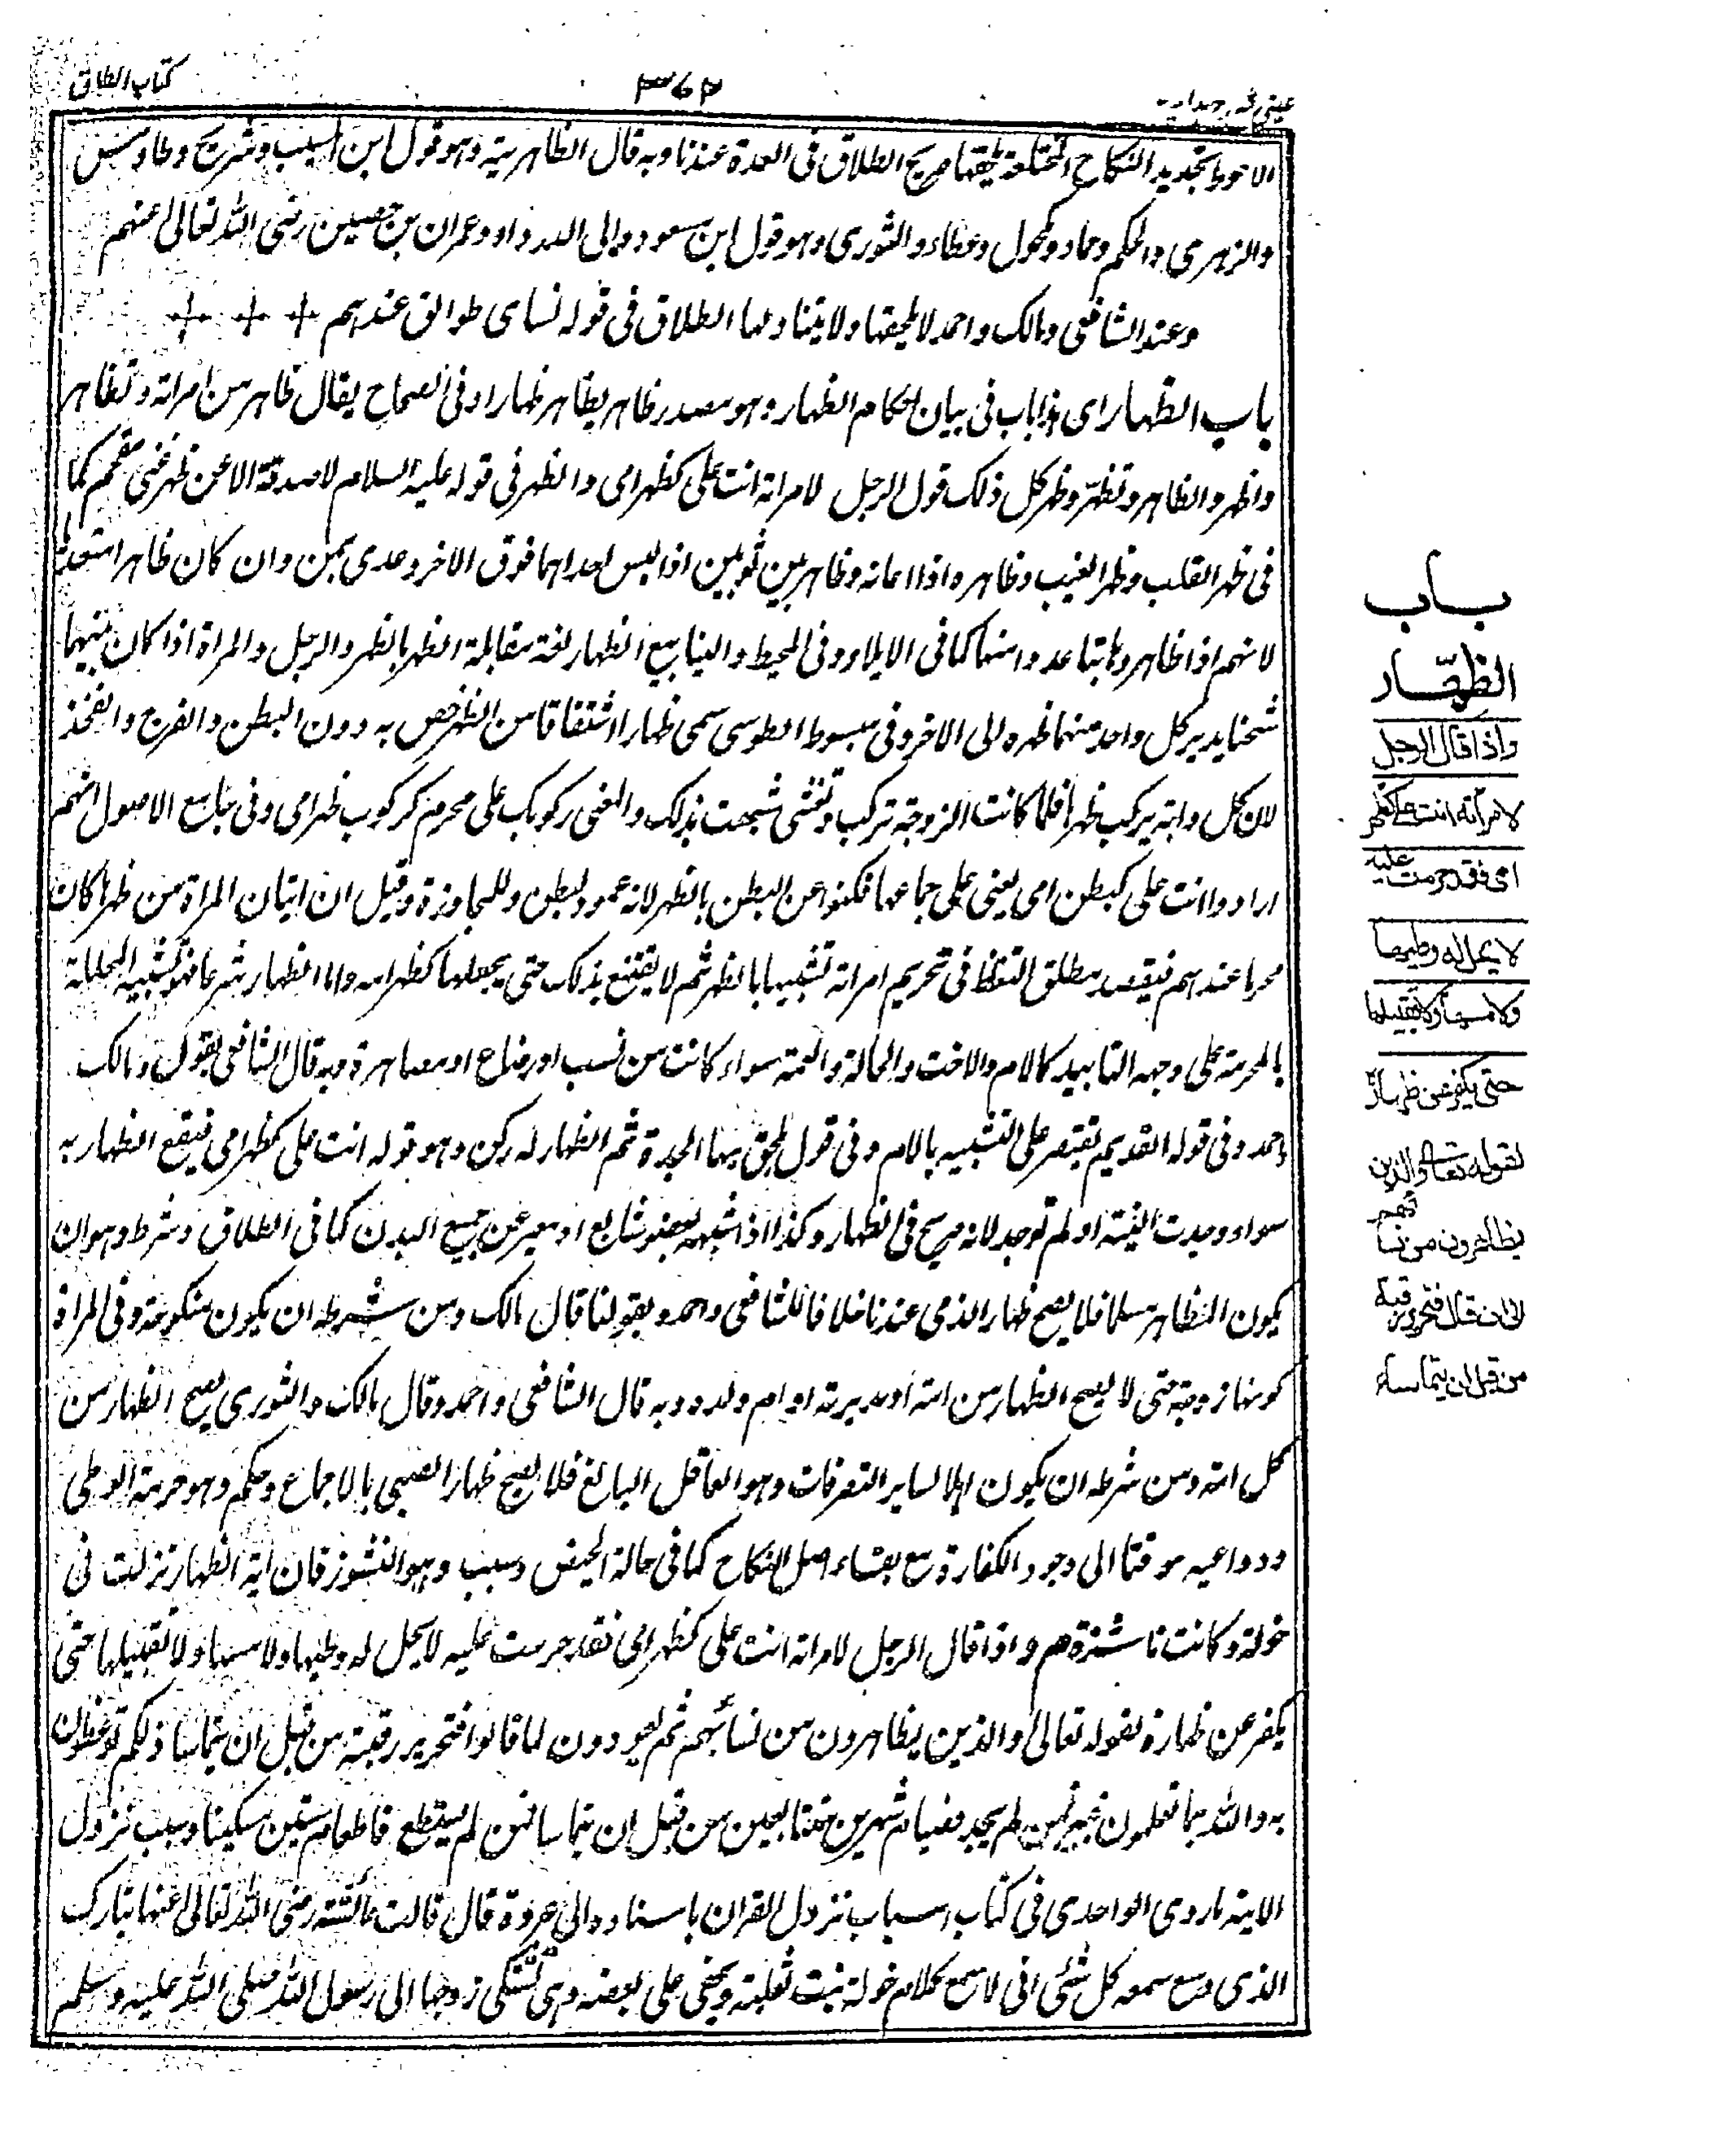 كتاب الطلاق
٣٦٢
عيني شرح هداية
الاحوط تجديد النكاح المختلعة يلحقها صريح الطلاق فى العدة عندنا وبه قال الظاهرية وهو قول ابن المسيب وشريح وطاوس
والزهرى والحكم وحماد ومكحول وعطاء والثورى وهو قول ابن مسعود وابى الدرداء وعمران بن حصين رضى الله تعالى عنهم
وعند الشافعى ومالك واحمد لا يلحقها ولا يتناولها الطلاق فى قوله نساى طوالق عندهم
باب الظهار اى هذا باب فى بيان احكام الظهار وهو مصدر ظاهر يظاهر ظهارا وفى الصحاح يقال ظاهر من امراته وتظاهر
واظهر والظاهر وتظهّر وظهر كل ذلك قول الرجل لامراته انت على كظهر امى والظهر فى قوله عليه السلام لا صدقة الا عن ظهر غنى مقحم كما
فى ظهر القلب وظهر الغيب وظاهره اذا اعانه وظاهر بين ثوبين اذا لبس احداهما فوق الاخر وعدى بمن وان كان ظاهر متعديا
لانهم اذا ظاهروا تباعدوا منها كما فى الايلاء وفى المحيط والينابيع الظهار لغة مقابلة الظهر بالظهر والرجل والمراة اذا كان بينهما
شحنا يدير كل واحد منهما ظهره الى الاخر وفى مبسوط الطوسى سمى ظهارا اشتقاقا من الظهر خص به دون البطن والفرج والفخذ
لان كل دابة يركب ظهرا فلما كانت الزوجة تركب وتغشى شبهت بذلك والمعنى ركوبك على محرم كركوب ظهر امى وفى جامع الاصول انهم
ارادوا انت على كبطن امى يعنى على جماعها فكنوا عن البطن بالظهر لانه عمود البطن وللمجاورة وقيل ان اتيان المراة من ظهرها كان
محرما عندهم فيقصد مطلق التغلظ فى تحريم امراته تشبيها بالظهر ثم لا يقتنع بذلك حتى يجعلها كظهر امه واما الظهار شرعا فهو تشبيه المحللة
بالمحرمة على وجه التابيد كالام والاخت والخالة والعمة سواء كانت من نسب او رضاع او مصاهرة وبه قال الشافعى بقول ومالك
واحمد وفى قوله القديم يقتصر على التشبيه بالام وفى قول لحق بها الجدة ثم الظهار له ركن وهو قوله انت على كظهر امى فيقع الظهار به
سواء وجدت النية او لم توجد لانه صريح فى الظهار وكذا اذا شبهه بعضو شايع او يعبر عن جميع البدن كما فى الطلاق وشرط وهو ان
يكون المظاهر مسلما فلا يصح ظهار الذمى عندنا خلافا للشافعى واحمد وبقولنا قال مالك ومن شرطه ان يكون منكوحة وفى المراة
كونها زوجة حتى لا يصح الظهار من امته او مدبرته او ام ولده وبه قال الشافعى واحمد وقال مالك والثورى يصح الظهار من
كل امته ومن شرطه ان يكون اهلا لساير التصرفات وهو العاقل البالغ فلا يصح ظهار الصبى بالاجماع وحكم وهو حرمة الوطى
ودواعيه موقتا الى وجود الكفارة مع بقاء اصل النكاح كما فى حالة الحيض وسبب وهو النشوز فان اية الظهار نزلت فى
خولة وكانت ناشزة م واذا قال الرجل لامراته انت على كظهر امى فقد حرمت عليه لا يحل له وطيها ولا مسها ولا تقبيلها حتى
يكفر عن ظهارة لقوله تعالى والذين يظاهرون من نسائهم ثم يعودون لما قالوا فتحرير رقبة من قبل ان يتماسا ذلكم توعظون
به والله بما تعلمون خبير فمن لم يجد فصيام شهرين متتابعين من قبل ان يتماسا فمن لم يستطع فاطعام ستين مسكينا وسبب نزول
الاية ما روى الواحدى فى كتاب اسباب نزول القران باسناده الى عروة قال قالت عائشة رضى الله تعالى عنها تبارك
الذى وسع سمعه كل شئ انى لاسمع كلام خولة بنت ثعلبة ويخفى على بعضه وهى تشتكى زوجها الى رسول الله صلى الله عليه وسلم
باب
الظهّار
واذا قال الرجل
لامرأته انت علے كظهر
امى فقد حرمت عليه
لا يحل له وطيها
ولا مسها ولا تقبيلها
حتى يكفر عن ظهاره
لقوله تعالى والذين
يظاهرون من نسائهم
الى ان قال فتحرير رقبة
من قبل ان يتماسا